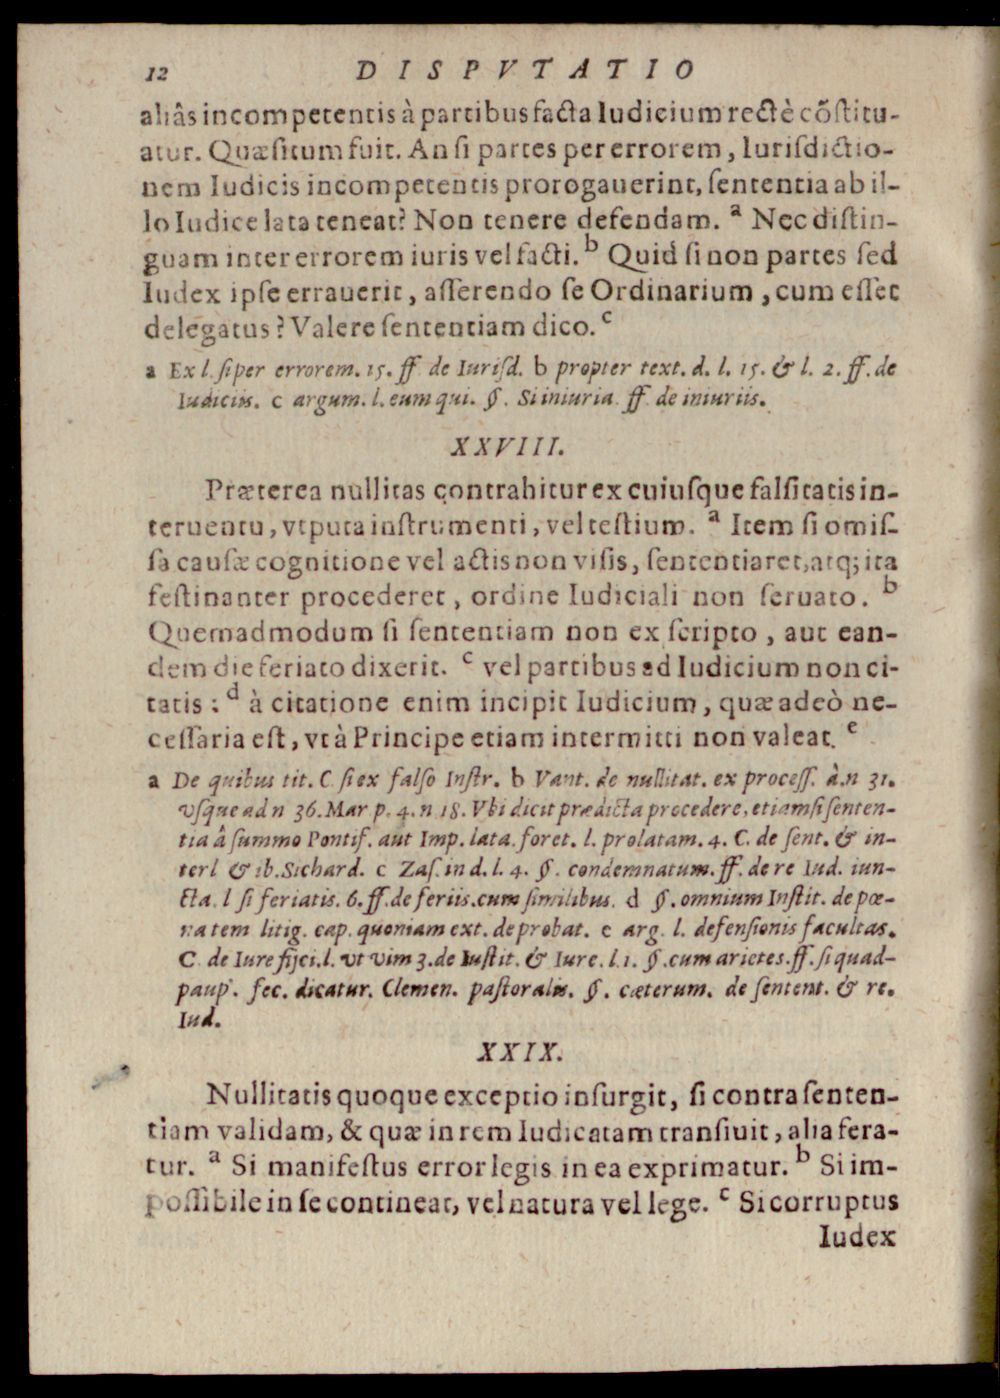 12 DISPVTATIO
aliâs incompetentis à partibus facta Iudicium rectè cõſtitu-
atur. Quæſitum fuit. An ſi partes per errorem, Iurisdictio-
nem Iudicis incompetentis prorogauerint, ſententia ab il-
lo Iudice lata teneat? Non tenere defendam. a Nec diſtin-
guam inter errorem iuris vel facti. b Quid ſi non partes ſed
Iudex ipſe errauerit, aſſerendo ſe Ordinarium, cum eſſet
delegatus? Valere ſententiam dico. c
a Ex l. ſi per errorem. 15. ff. de Iuriſd. b propter text. d. l. 15. & l. 2. ff. de
Iudiciis. c argum. l. eum qui. §. Si iniuria. ff. de iniuriis.
XXVIII.
Præterea nullitas contrahitur ex cuiuſque falſitatis in-
teruentu, vtputa inſtrumenti, vel teſtium. a Item ſi omiſ-
ſa cauſæ cognitione vel actis non viſis, ſententiaret, atq; ita
feſtinanter procederet, ordine Iudiciali non ſeruato. b
Quemadmodum ſi ſententiam non ex ſcripto, aut ean-
dem die feriato dixerit. c vel partibus ad Iudicium non ci-
tatis: d à citatione enim incipit Iudicium, quæ adeò ne-
ceſſaria eſt, vt à Principe etiam intermitti non valeat. e
a De quibus tit. C. ſi ex falſo Inſtr. b Vant. de nullitat. ex proceſſ. à. n 31.
vſque ad n 36. Mar p. 4. n 18. Vbi dicit prædicta procedere, etiamſi ſenten-
tia â ſummo Pontif. aut Imp. lata. foret. l. prolatam. 4. C. de ſent. & in-
terl & ib. Sichard. c Zaſ. in d. l. 4. §. condemnatum. ff. de re Iud. iun-
cta. l ſi feriatis. 6. ff. de feriis. cum ſimilibus. d §. omnium Inſtit. de pœ-
na tem litig. cap. quoniam ext. de probat. e arg. l. defenſionis facultas.
C. de Iure fiſci. l. vt vim 3. de Iuſtit. & Iure. l. 1. §. cum arietes. ff. ſi quad-
paup. fec. dicatur. Clemen. paſtoralis. §. cæterum. de ſentent. & re.
Iud.
XXIX.
Nullitatis quoque exceptio inſurgit, ſi contra ſenten-
tiam validam, & quæ in rem Iudicatam tranſiuit, alia fera-
tur. a Si manifeſtus error legis in ea exprimatur. b Si im-
poſſibile in ſe contineat, vel natura vel lege. c Si corruptus
Iudex